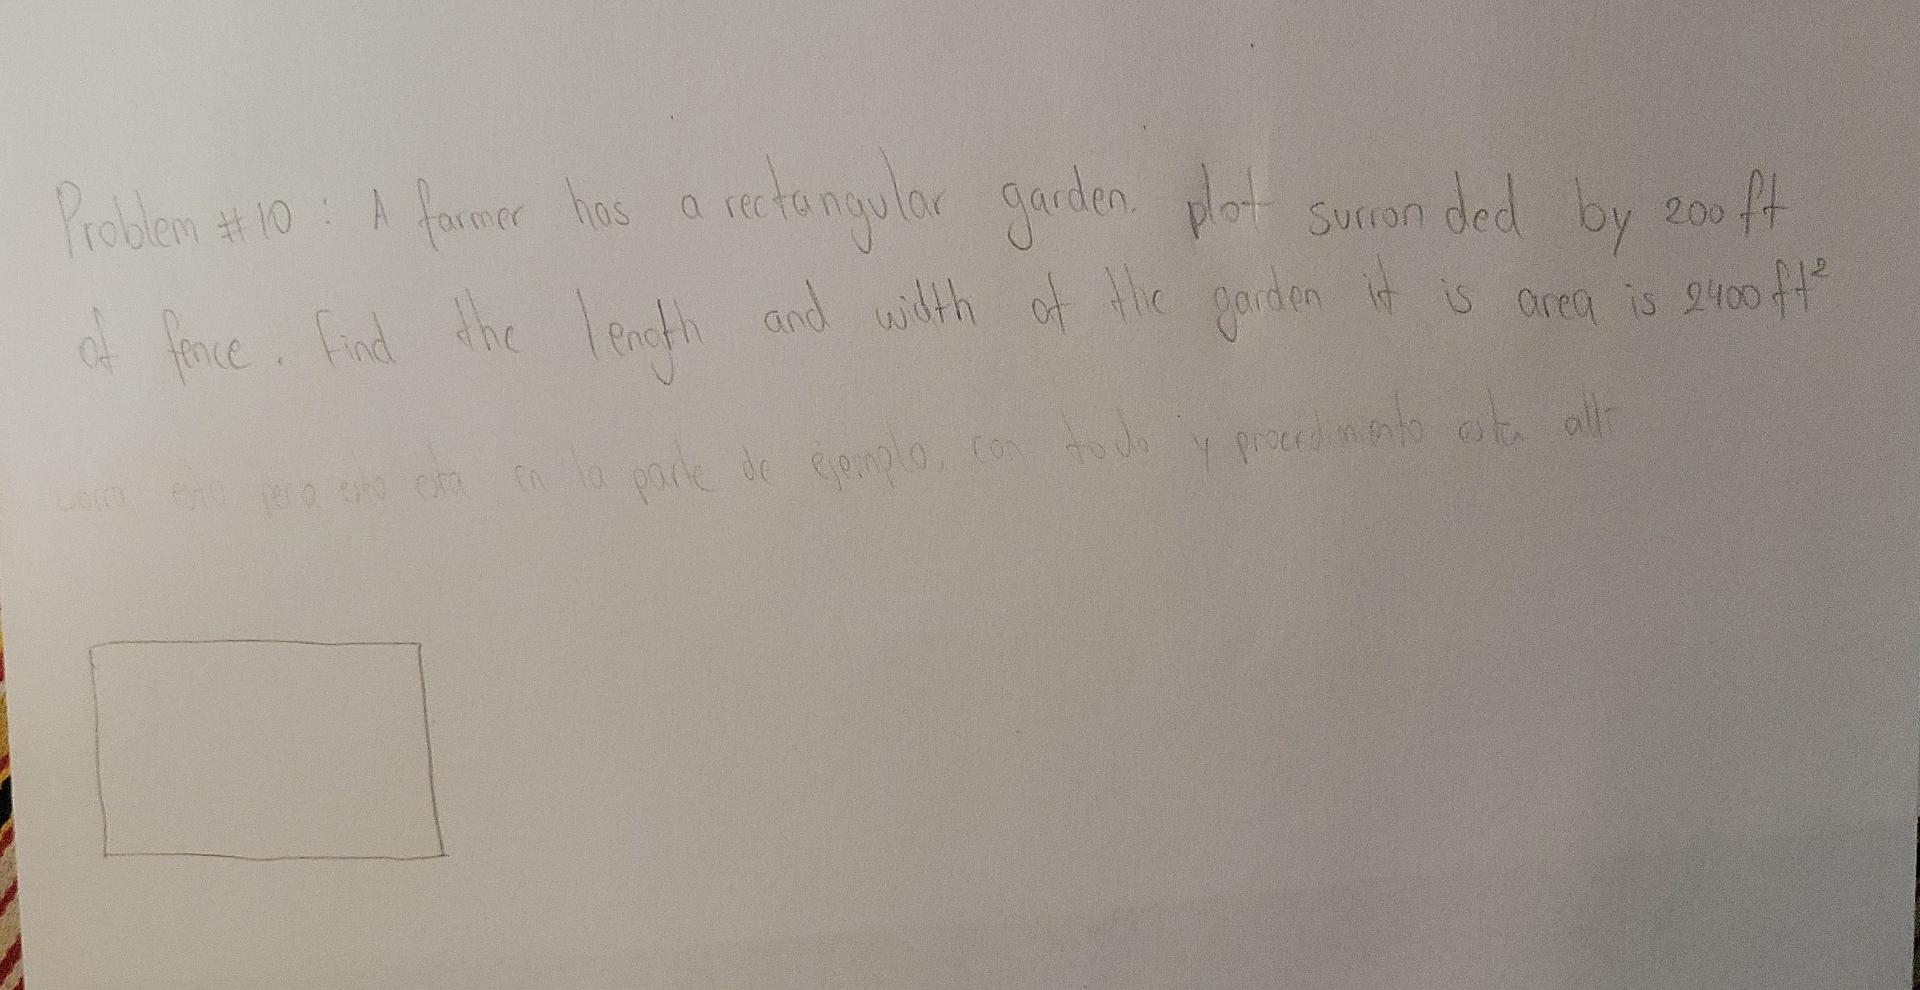 Problem #10 : A farmer has a rectangular garden. plot surronded by 200 ft
of fence. Find the length and width of the garden if is area is 2400 ft²
como esto pero esto esta en la parte de ejemplo, con todo y procedimiento esta alli